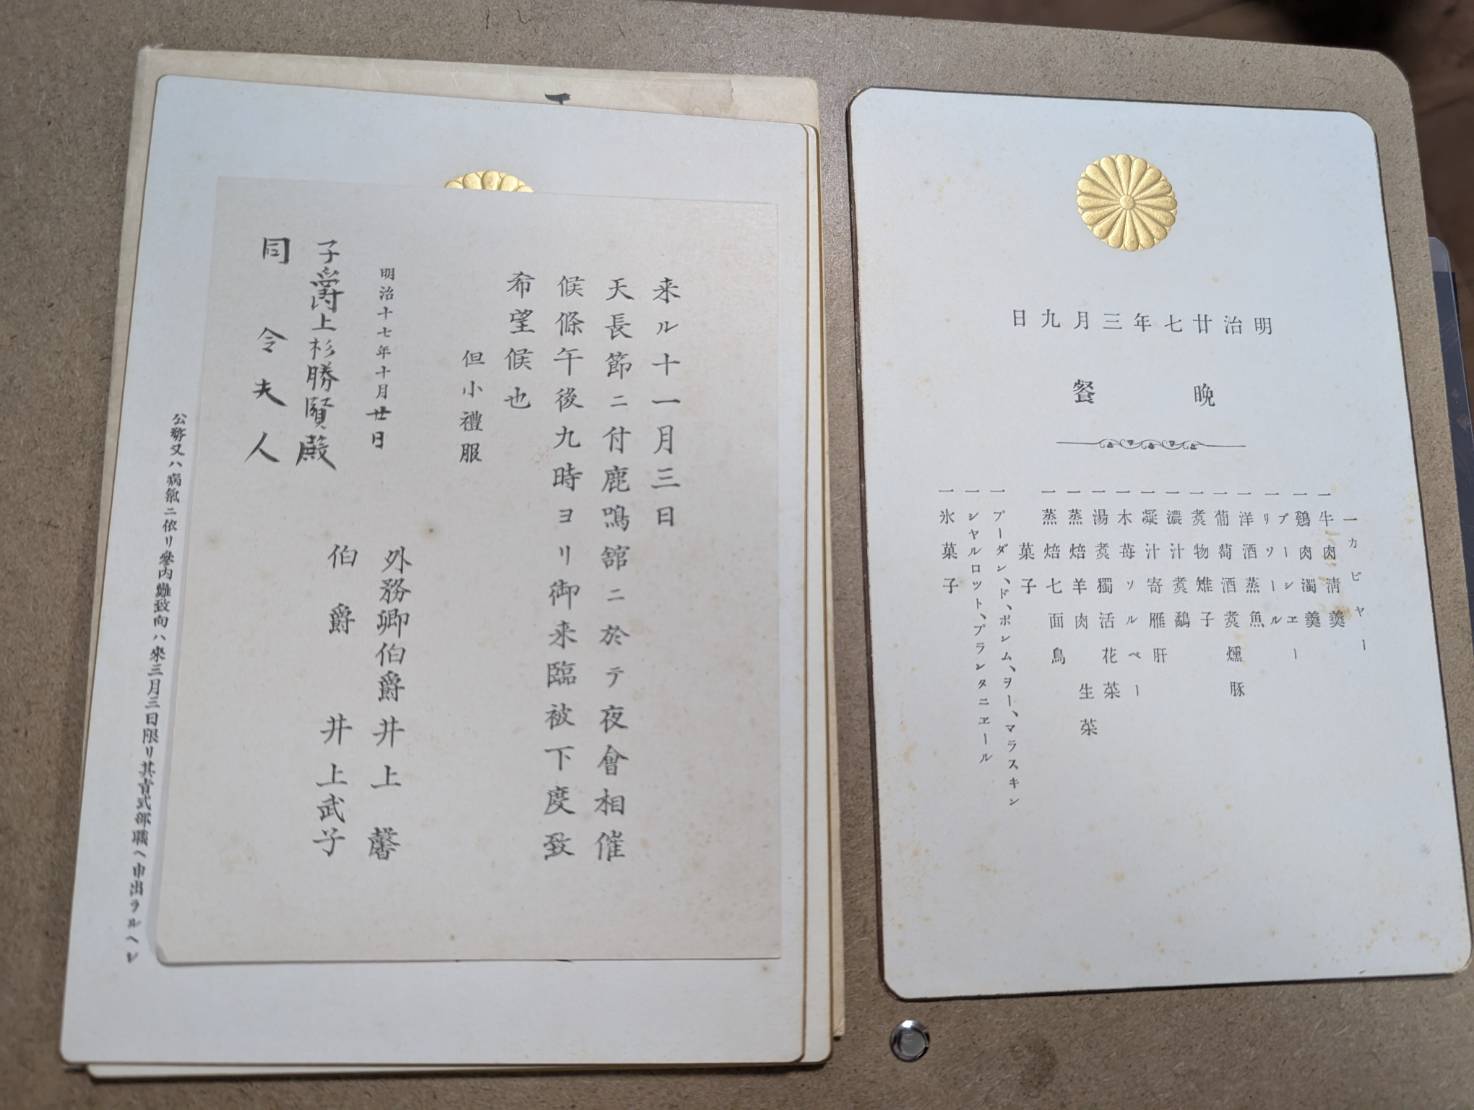 来ル十一月三日
天長節ニ付鹿鳴舘ニ於テ夜會相催
候條午後九時ヨリ御来臨被下度致
希望候也
但小禮服
明治十七年十月廿日
外務卿伯爵井上馨
伯爵井上武子
子爵上杉勝賢殿
同令夫人
公務又ハ病氣ニ依リ參内難致向ハ來三月三日限リ其旨式部職ヘ申出ラルヘシ
日九月三年七廿治明
餐晩
一カビヤー
一牛肉淸羹
一鷄肉濁羹
一ブーシヱー
一リソール
一洋酒蒸魚
一葡萄酒煮燻豚
一煮物雉子
一濃汁煮鷸
一凝汁寄雁肝
一木苺ソルベー
一湯煮獨活花菜
一蒸焙羊肉生菜
一蒸焙七面鳥
菓子
一プーダンド、ド、ポンム、ヲー、マラスキン
一シヤルロツト、プランタニヱール
一氷菓子